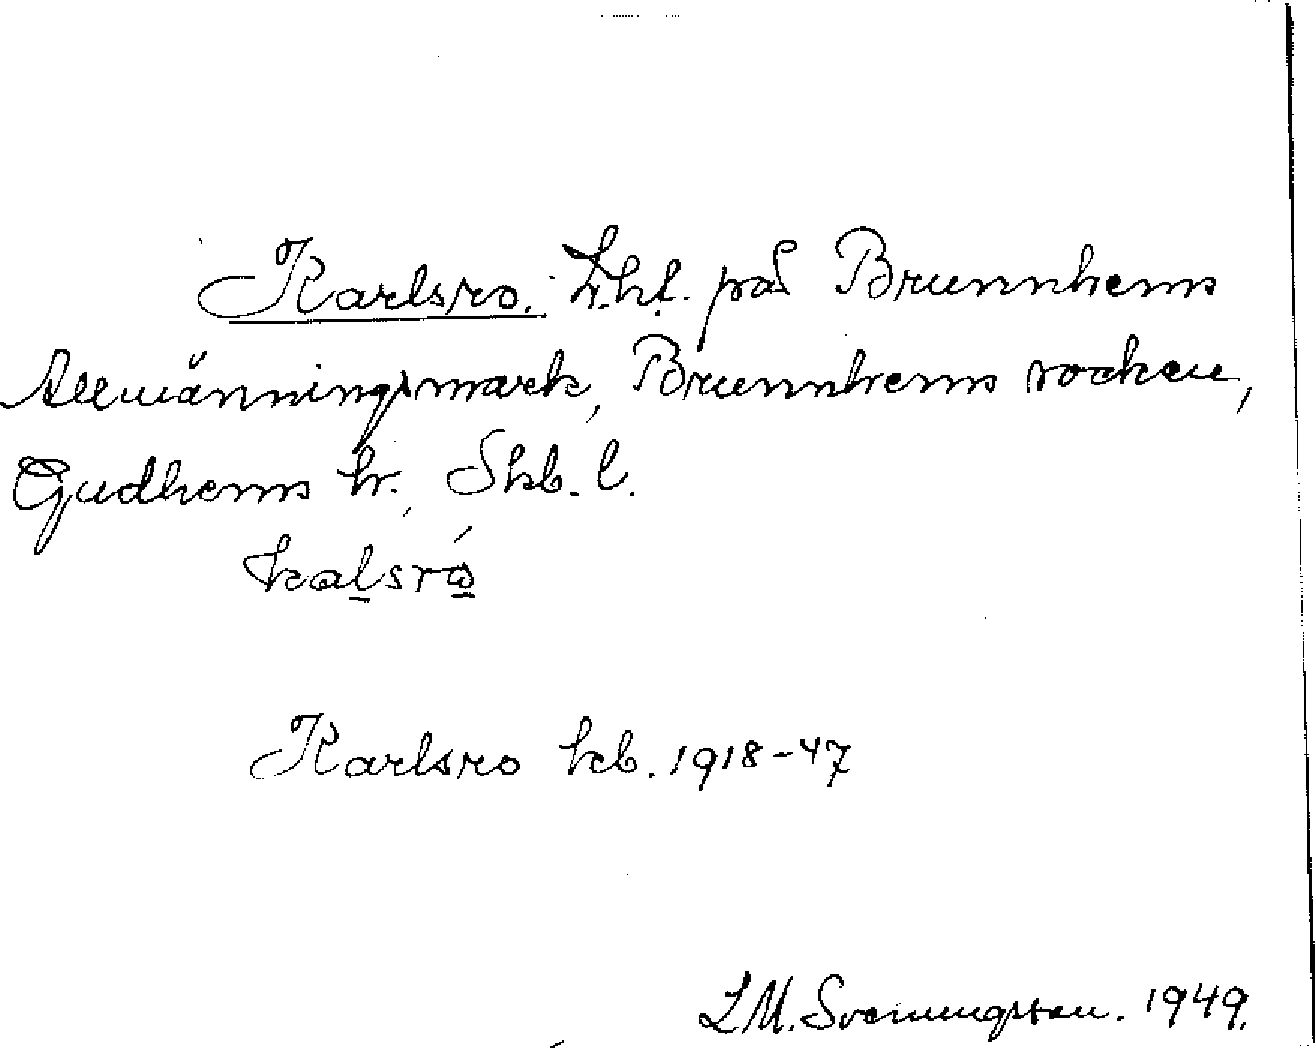 Karlsro. Lht. på Brunnhems
Allmänningsmark, Brunnhems socken,
Gudhems hr. Skb. l.
kalsró
Karlsro kb. 1918-47
L M. Svenungsson. 1949.